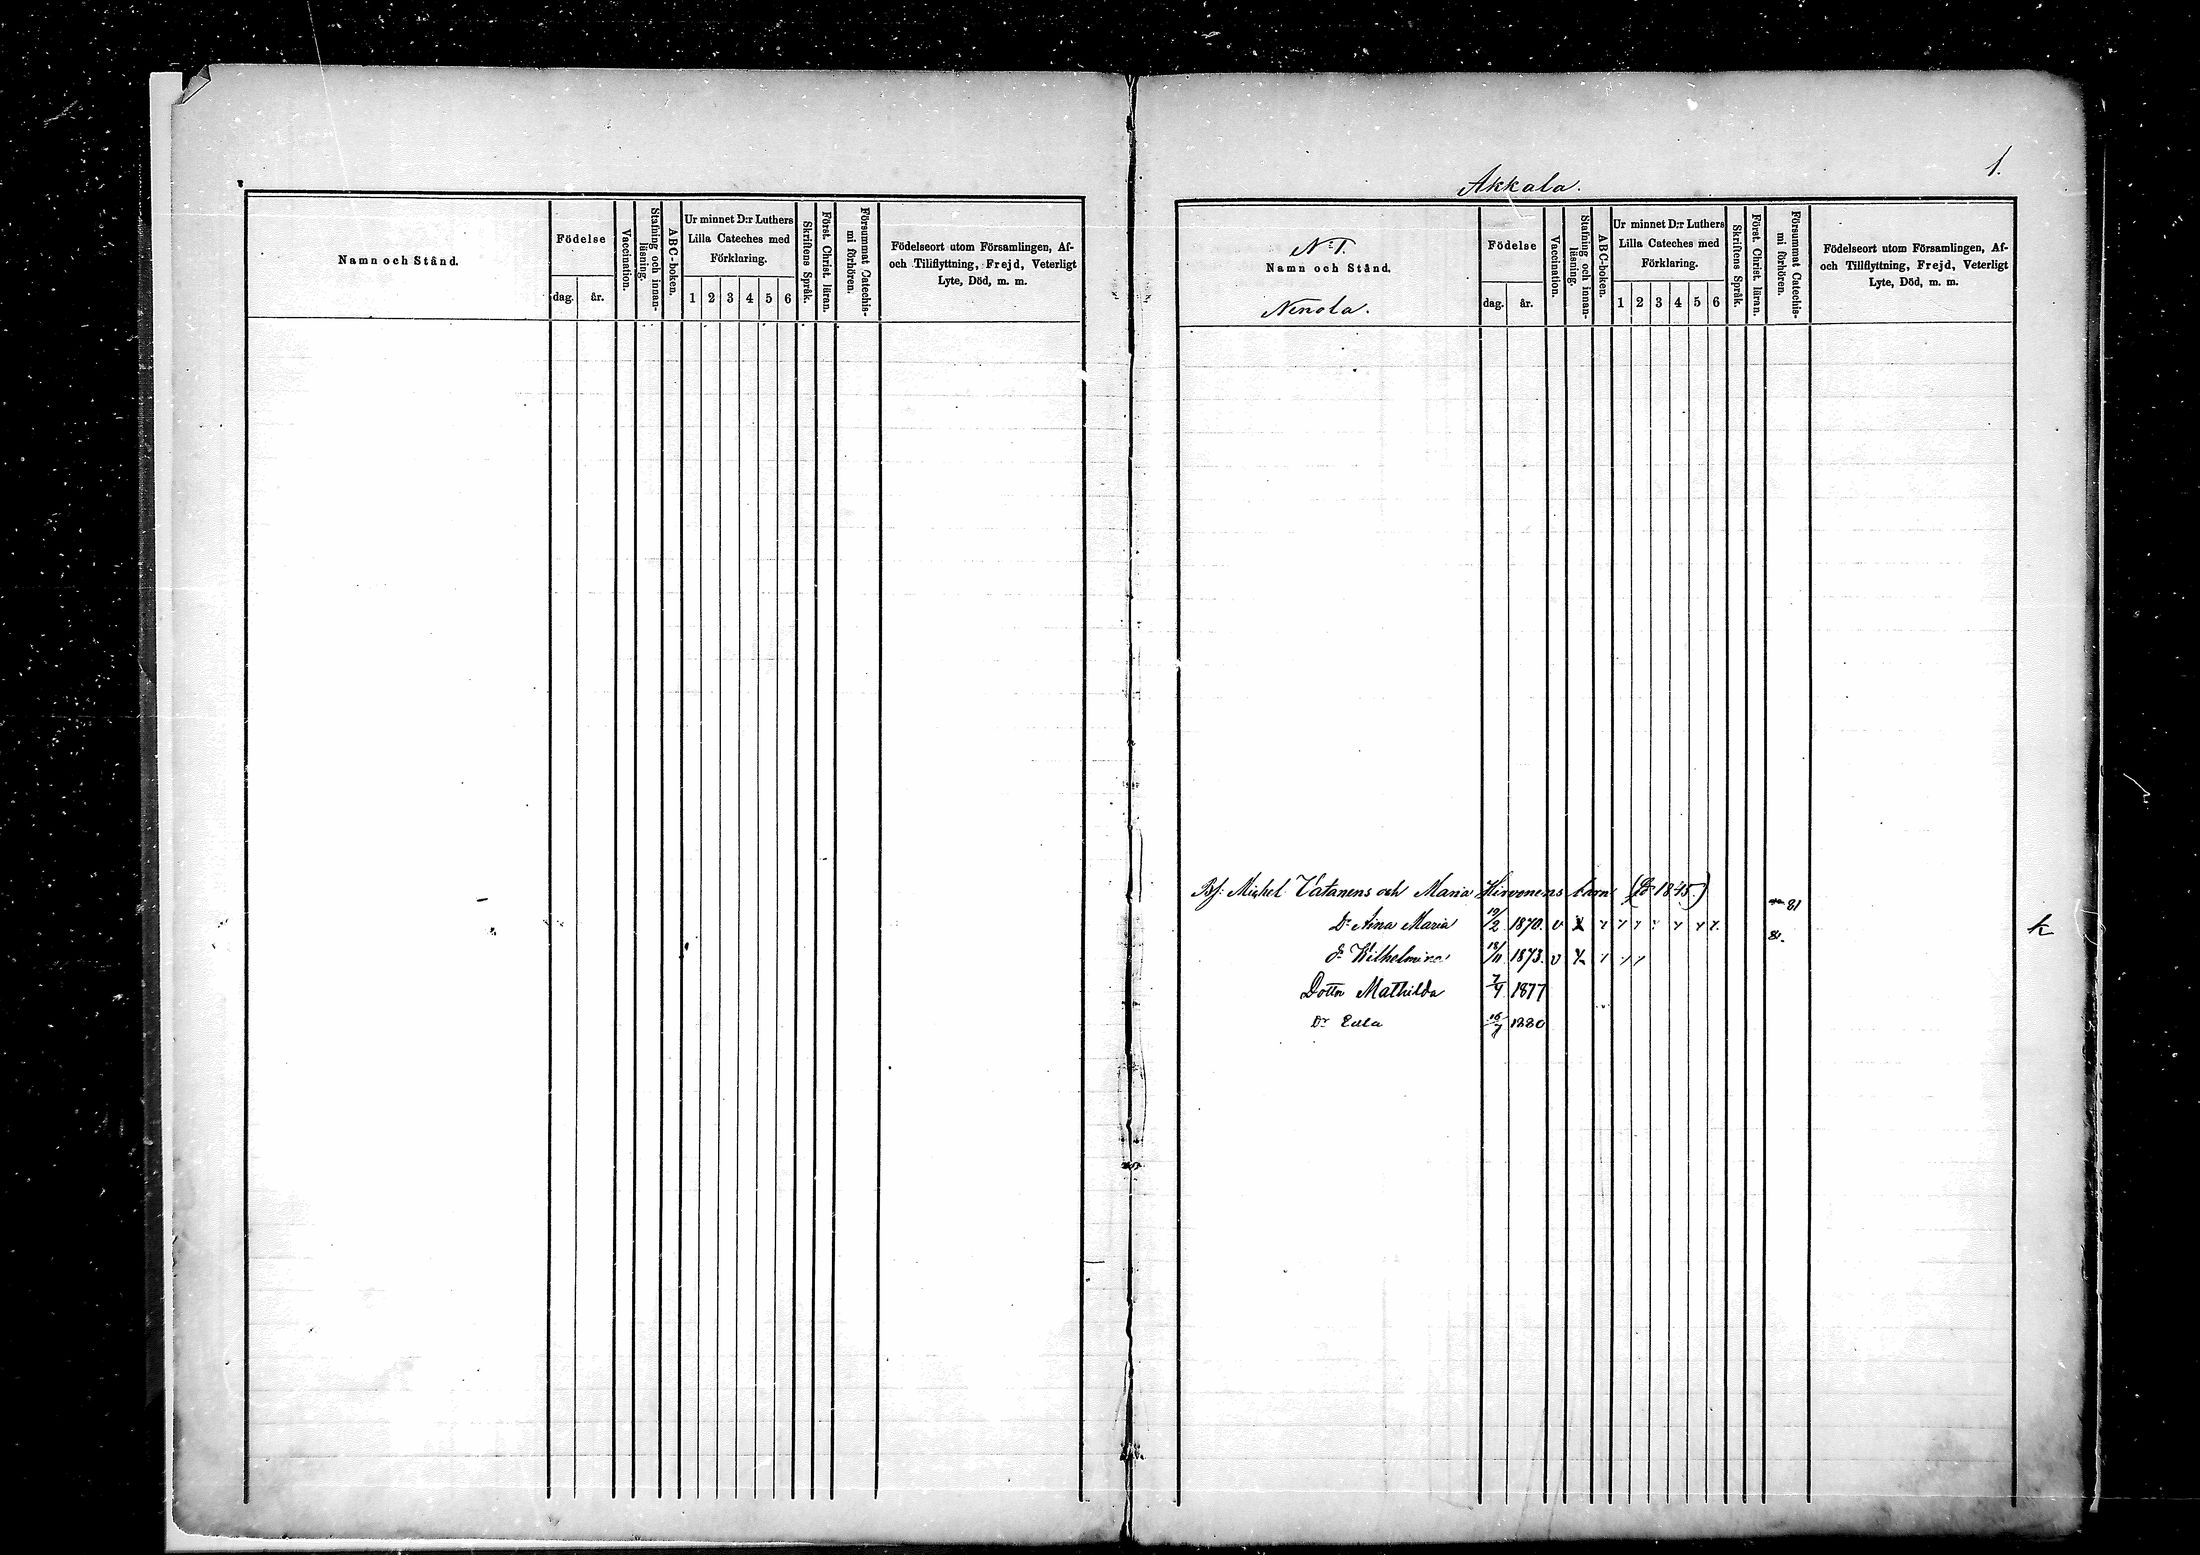 Namn och Stånd.
Födelse
dag. år.
Vaccination.
Stafning och innan-
läsning.
ABC-boken.
Ur minnet D:r Luthers
Lilla Cateches med
Förklaring.
1 2 3 4 5 6
Skriftens Språk.
Först. Christ. läran.
Försummat Catechis-
mi förhören.
Födelseort utom Församlingen, Af-
och Tillflyttning, Frejd, Veterligt
Lyte, Död, m. m.
1.
Akkala.
N:o 1.
Namn och Stånd.
Nenola.
Födelse
dag. år.
Vaccination.
Stafning och innan-
läsning.
ABC-boken.
Ur minnet D:r Luthers
Lilla Cateches med
Förklaring.
1 2 3 4 5 6
Skriftens Språk.
Först. Christ. läran.
Försummat Catechis-
mi förhören.
Födelseort utom Församlingen, Af-
och Tillflyttning, Frejd, Veterligt
Lyte, Död, m. m.
Michel Vatanens och Maria Hirvonens barn 1845.)
D:r Aina Maria 19/2 1870. v 81
Wilhelmina 18/11 1873. v 81.
Dottr Mathilda 7/9 1877
D:r Edla 16/7 1880
k